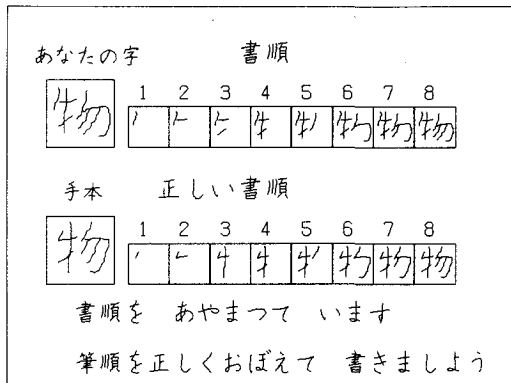 あなたの字 書順
物 1 2 3 4 5 6 7 8
物 物 物
手本 正しい書順
物 1 2 3 4 5 6 7 8
物 物 物
書順を あやまつて います
筆順を正しくおぼえて 書きましよう